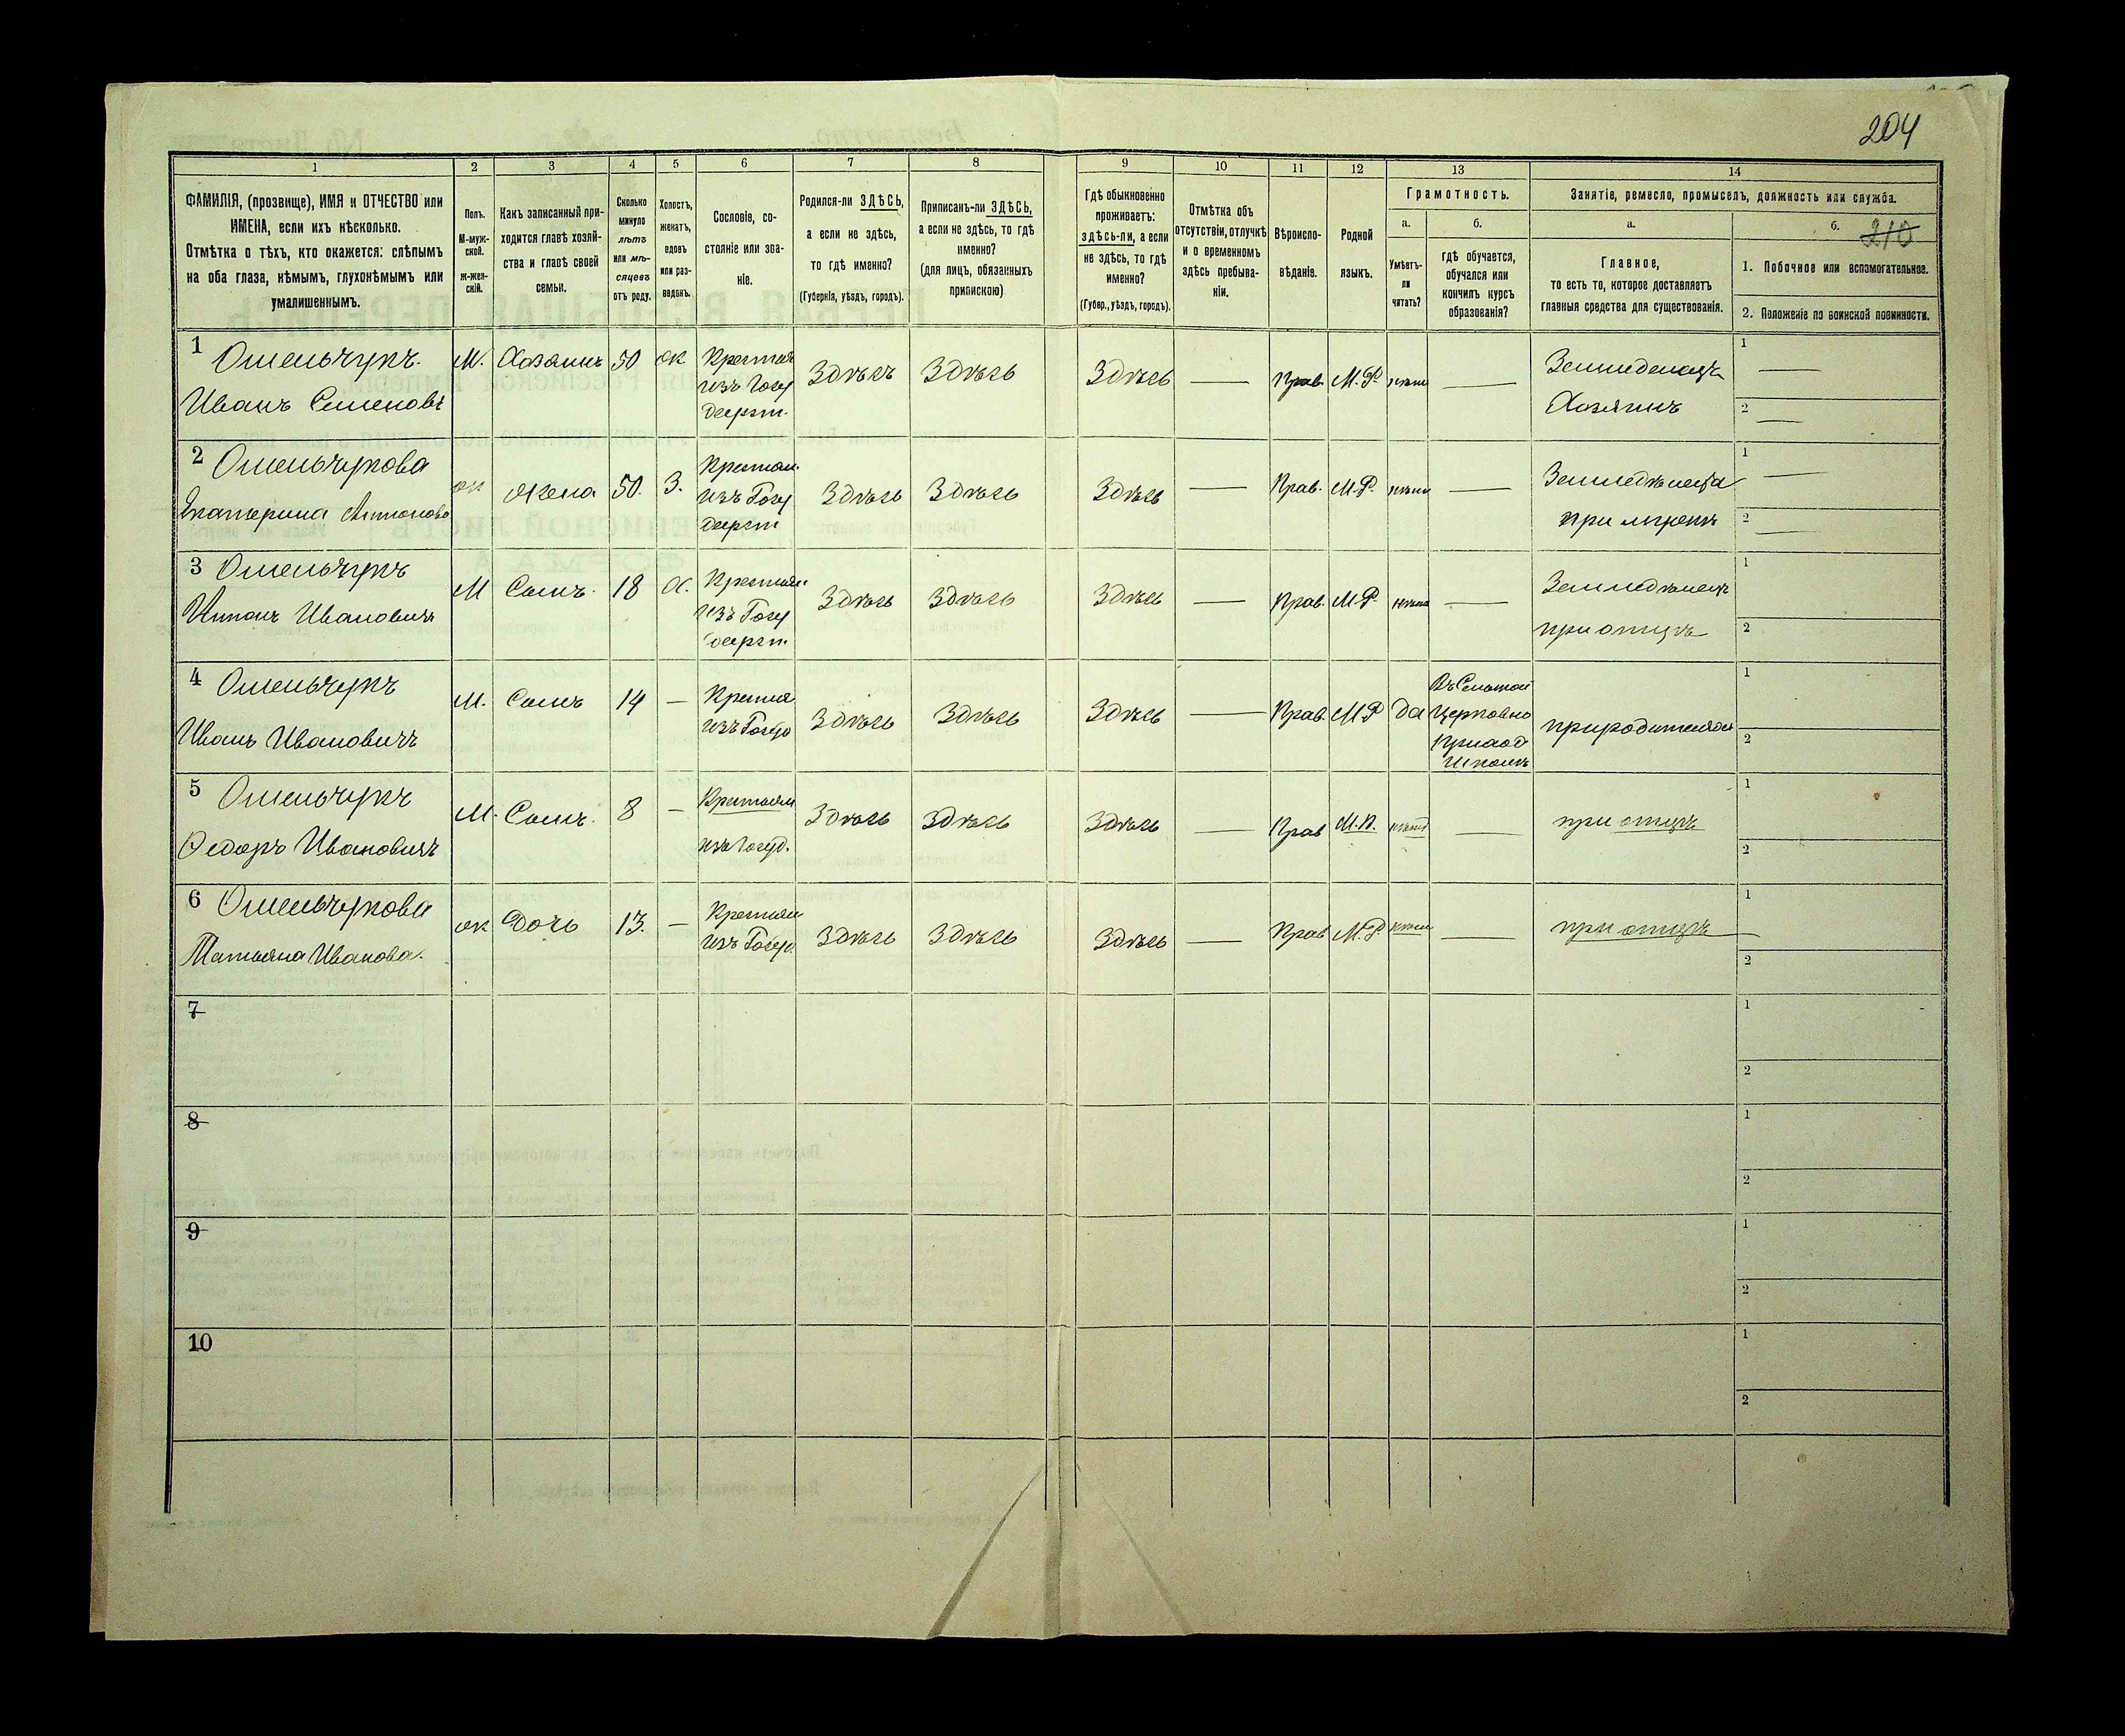 204
1
2
3
4
5
6
7
8
9
10
11
12
13
14
ФАМИЛІЯ, (прозвище), ИМЯ и ОТЧЕСТВО или
ИМЕНА, если ихъ нѣсколько.
Отмѣтка о тѣхъ, кто окажется: слѣпымъ
на оба глаза, нѣмымъ, глухонѣмымъ или
умалишеннымъ.
Полъ.
М-муж-
ской.
ж-жен-
скій.
Какъ записанный при-
ходится главѣ хозяй-
ства и главѣ своей
семьи.
Сколько
минуло
лѣтъ
или мѣ-
сяцевъ
отъ роду.
Холостъ,
женатъ,
вдовъ
или раз-
веденъ.
Сословіе, со-
стояніе или зва-
ніе.
Родился-ли ЗДѢСЬ,
а если не здѣсь,
то гдѣ именно?
(Губернія, уѣздъ, городъ).
Приписанъ-ли ЗДѢСЬ,
а если не здѣсь, то гдѣ
именно?
(для лицъ, обязанныхъ
припискою)
Гдѣ обыкновенно
проживаетъ:
здѣсь-ли, а если
не здѣсь, то гдѣ
именно?
(Губер., уѣздъ, городъ).
Отмѣтка объ
отсутствіи, отлучкѣ
и о временномъ
здѣсь пребыва-
ніи.
Вѣроиспо-
вѣданіе.
Родной
языкъ.
Грамотность.
а.
Умѣетъ-
ли
читать?
б.
гдѣ обучается,
обучался или
кончилъ курсъ
образованія?
Занятіе, ремесло, промыселъ, должность или служба.
а.
Главное,
то есть то, которое доставляетъ
главныя средства для существованія.
б.
210
1. Побочное или вспомогательное.
2. Положеніе по воинской повинности.
1 Омельчукъ
Иванъ Семеновъ
М. Хозяинъ 50 ж
Крестья
изъ Госу
дарст.
Здѣсь Здѣсь Здѣсь — Прав. М.Р. нѣт —
Земледелецъ
Хозяинъ
1 —
2 —
2 Омельчукова
Екатерина Антонова
ж Жена 50. З.
Крестьян
изъ Госу
дарст
Здѣсь Здѣсь Здѣсь — Прав. М.Р. нѣт —
при мужѣ
1 —
2 —
3 Омельчукъ
Иванович
М Сынъ 18 Х.
Крестьян
изъ Госу
дарст.
Здѣсь Здѣсь Здѣсь — Прав. М.Р. нѣт —
Земледѣлецъ
при отцѣ
1
2
4 Омельчукъ
Иванъ Ивановичъ
М. Сынъ 14 —
Крестья
изъ Госуд
Здѣсь Здѣсь Здѣсь — Прав. М.Р да
Церковно
Приход
Школѣ
при родителях
1
2
5 Омельчукъ
Федоръ Ивановичъ
М. Сынъ. 8 —
Крестьян
изъ Госуд.
Здѣсь Здѣсь Здѣсь — Прав М.Р. нѣт —
при отцѣ
1
2
6 Омельчукова
Татьяна Иванова.
ж Дочь 13. —
Крестьян
изъ Госуд.
Здѣсь Здѣсь Здѣсь — Прав М.Р. нѣт —
при отцѣ
1 —
2
7
1
2
8
1
2
9
1
2
10
1
2